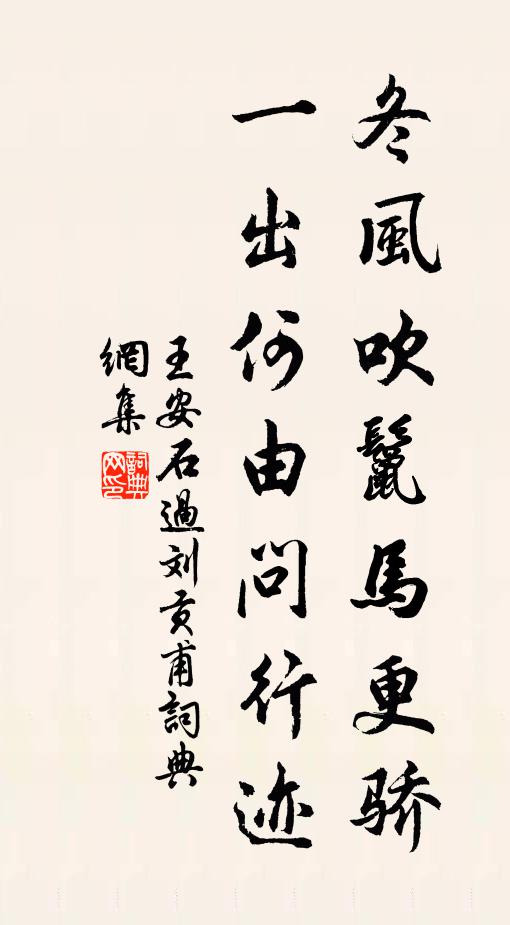 冬風吹鬣馬更骄
一出何由問行迹
王安石過刘贡甫詞典
網集
詞典網印